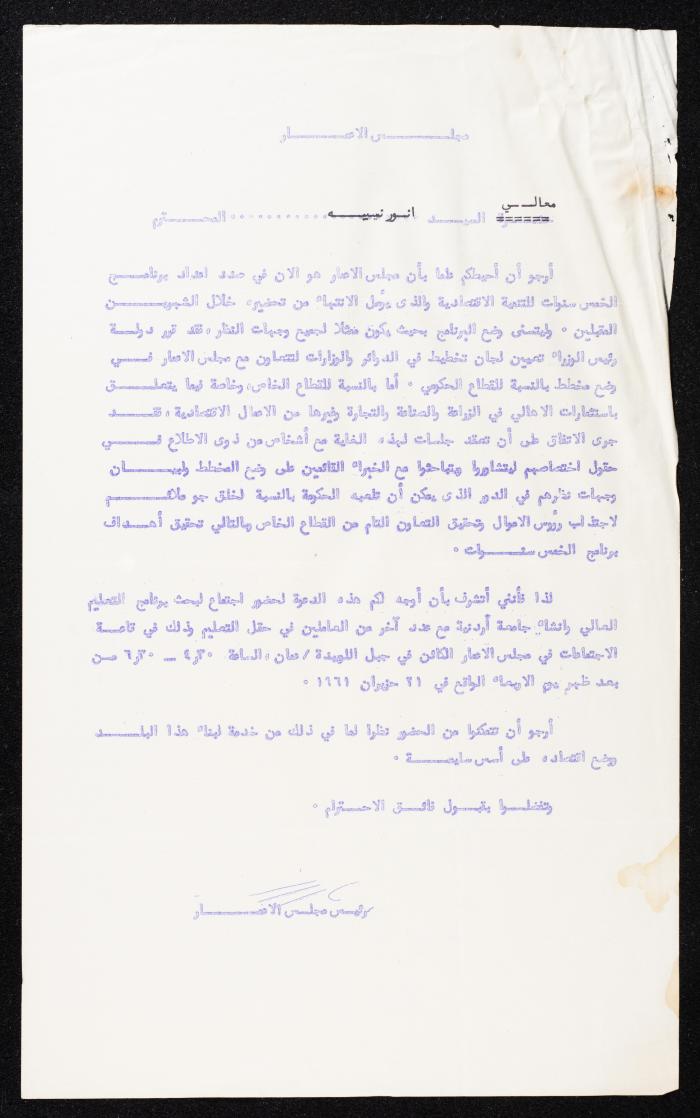 مجلـــس الاعـــمـــار
معالـــي
حضرة السيـــد انـور نسيبـــه ............ المحـــترم
أرجو أن أحيطكم علما بأن مجلس الاعمار هو الان في صدد اعداد برنامـــج
الخمس سنوات للتنمية الاقتصادية والذى يؤمل الانتهاء من تحضيره خلال الشهريـــن
المقبلين ٠ وليتسنى وضع البرنامج بحيث يكون ممثلا لجميع وجهات النظر ، فقد قرر دولـــة
رئيس الوزراء تعيين لجان تخطيط في الدوائر والوزارات لتتعاون مع مجلس الاعمار فـــي
وضع مخطط بالنسبة للقطاع الحكومي ٠ أما بالنسبة للقطاع الخاص، وخاصة فيما يتعلـــق
باستثمارات الاهالي في الزراعة والصناعة والتجارة وغيرها من الاعمال الاقتصادية ، فقـــد
جرى الاتفاق على أن تعقد جلسات لهذه الغاية مع أشخاص من ذوى الاطلاع فـــي
حقول اختصاصهم ليتشاوروا ويتباحثوا مع الخبراء القائمين على وضع المخطط ولبيـــان
وجهات نظرهم في الدور الذى يمكن أن تلعبه الحكومة بالنسبة لخلق جو ملائـــم
لاجتذاب رؤوس الاموال وتحقيق التعاون التام من القطاع الخاص وبالتالي تحقيق أهـــداف
برنامج الخمس سنـــوات ٠
لذا فأنني أتشرف بأن أوجه لكم هذه الدعوة لحضور اجتماع لبحث برنامج التعليم
العالي وانشاء جامعة أردنية مع عدد آخر من العاملين في حقل التعليم وذلك في قاعـــة
الاجتماعات في مجلس الاعمار الكائن في جبل اللويبدة / عمان ، الساعة ٤٫٣٠ ــ ٦٫٣٠ مـــن
بعد ظهر يوم الاربعاء الواقع في ٢١ حزيران ١٩٦١ ٠
أرجو أن تتمكنوا من الحضور نظرا لما في ذلك من خدمة لبناء هذا البلـــد
ووضع اقتصاده على أسس سليمـــة ٠
وتفضلـــوا بقبـــول فائـــق الاحـــترام ٠
رئيـــس مجلـــس الاعمـــار